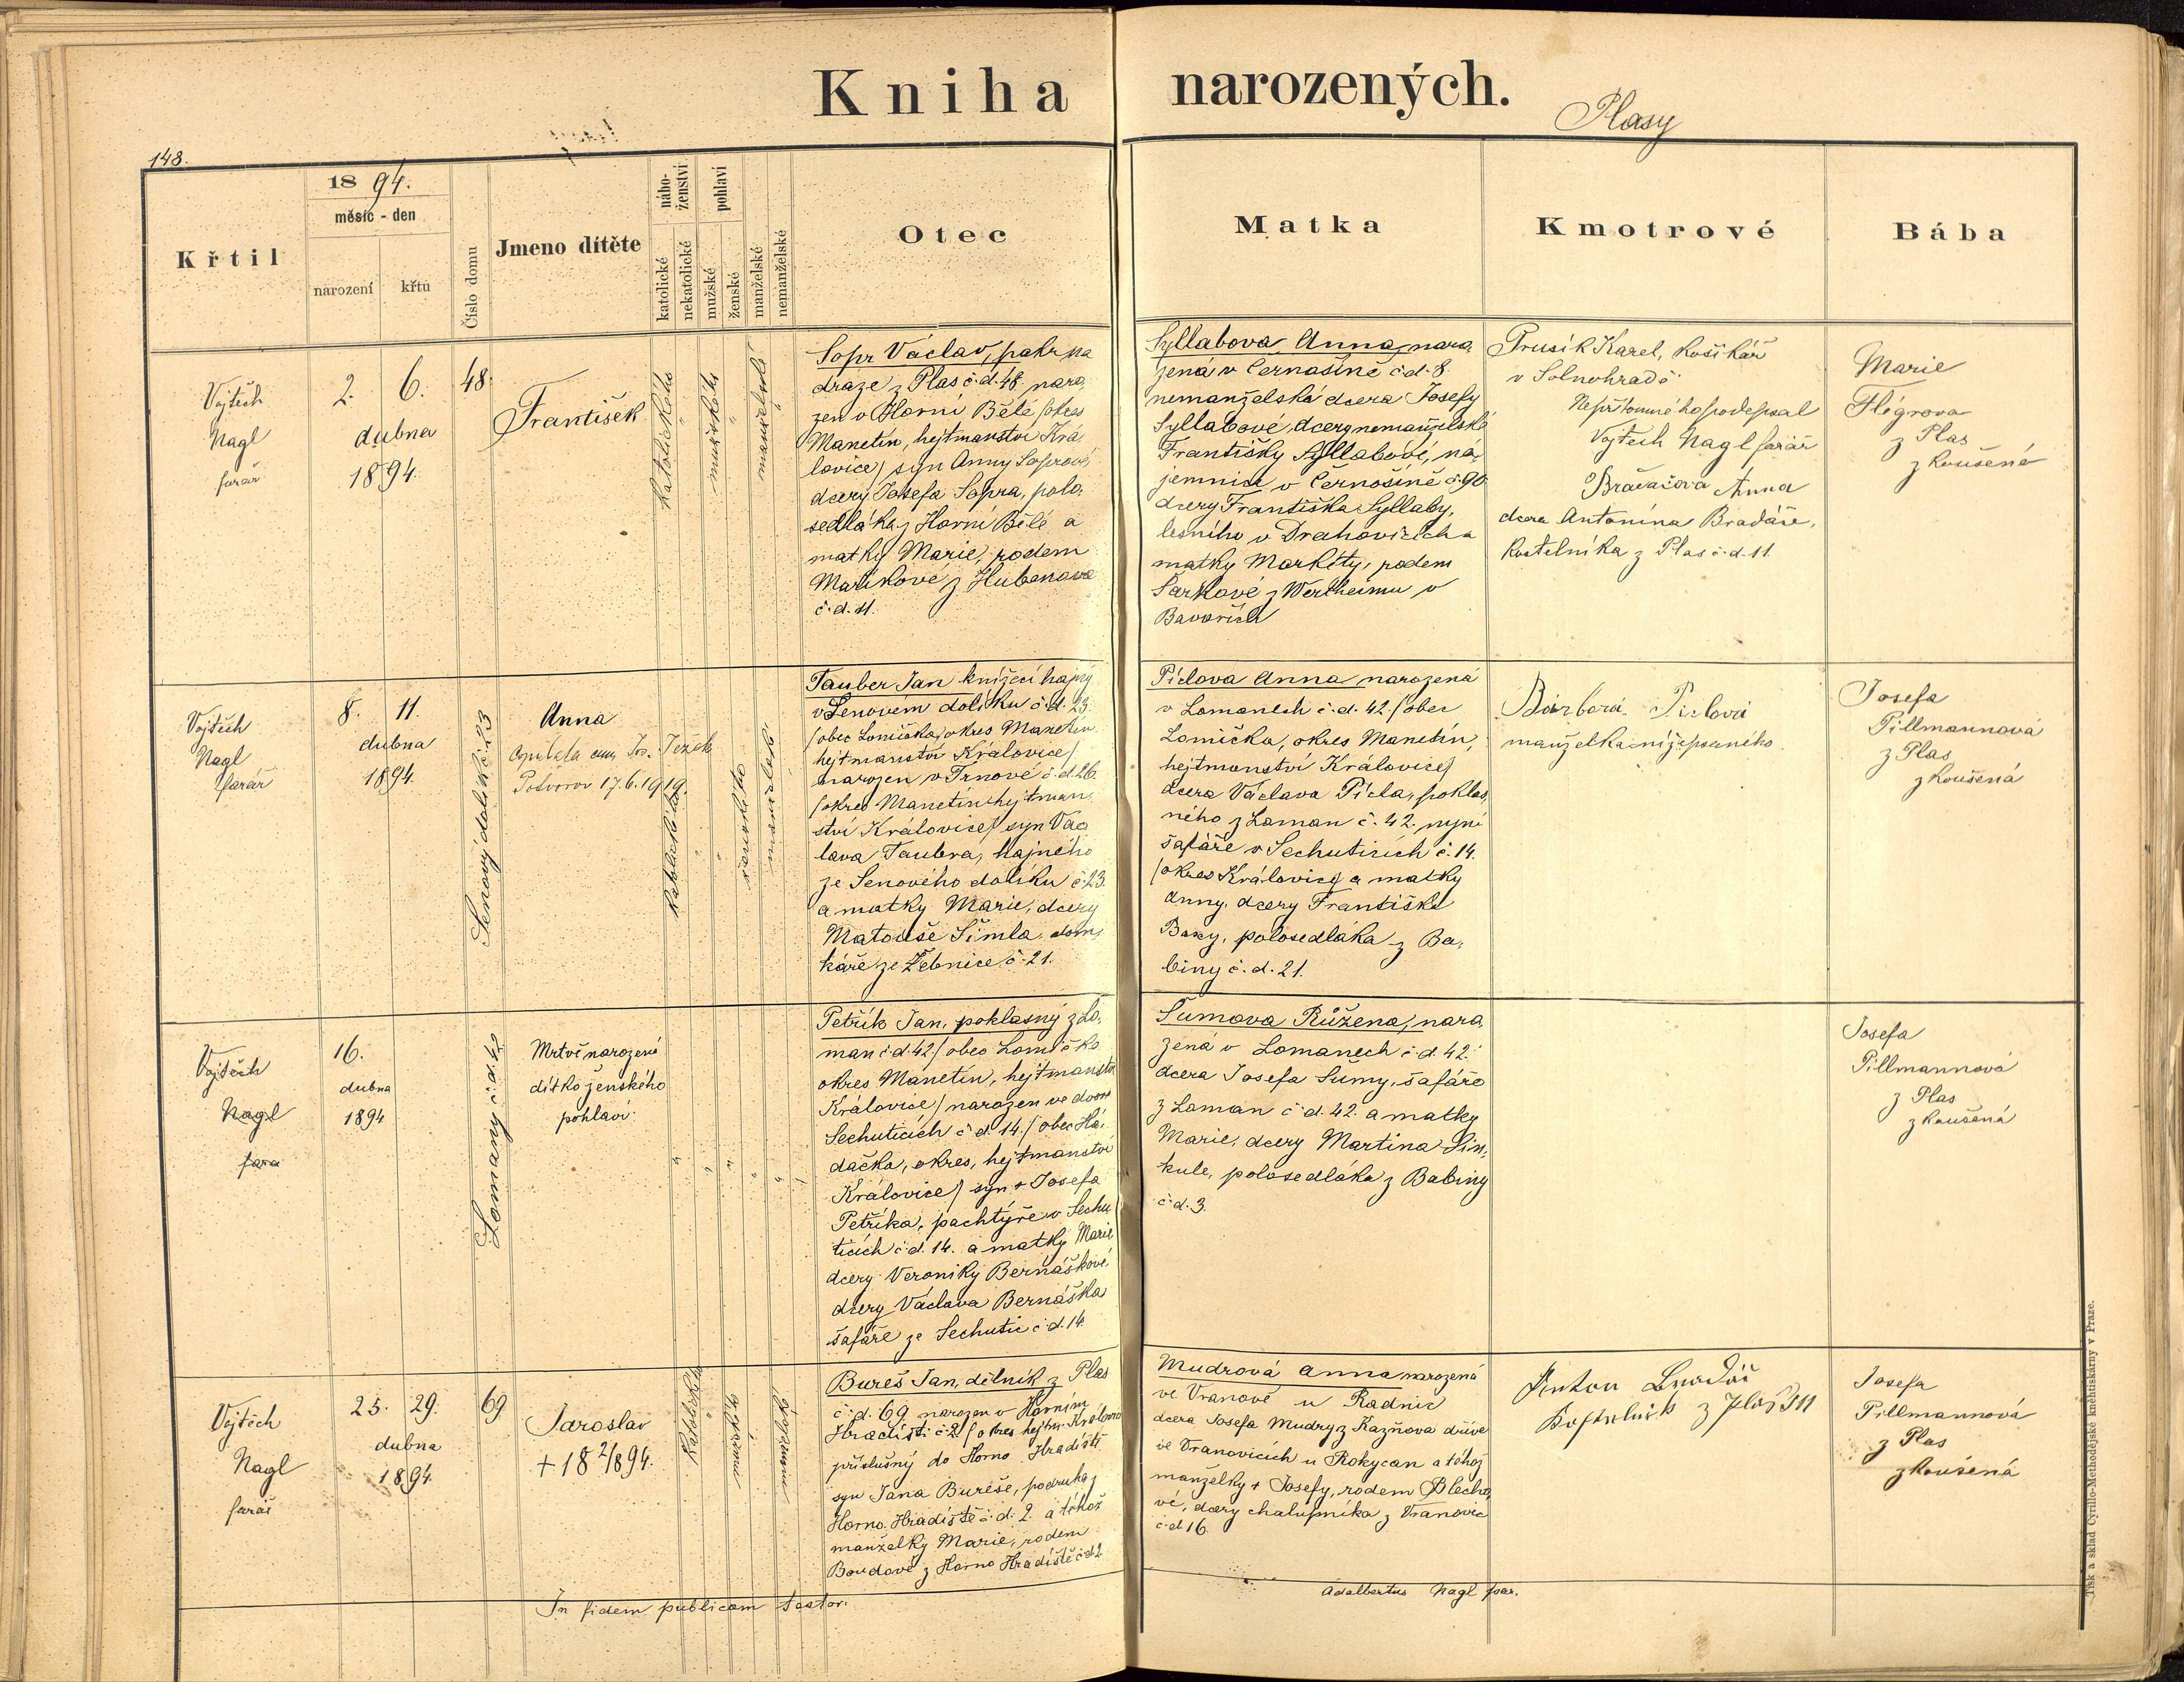 Kniha narozených.
Plasy
148.
Křtil
1894.
měsíc - den
narození
křtu
Číslo domu
Jmeno dítěte
nábo-
ženství
katolické
nekatolické
pohlaví
mužské
ženské
manželské
nemanželské
Otec
Matka
Kmotrové
Bába
Vojtěch
Nagl
farář
2. 6.
dubna
1894.
48.
František
katolického
mužského
manželské
Sopr Václav, pakr na
dráze z Plas č.d. 48. naro,
zen v Horní Bělé /okres
Manetín, hejtmanství Krá,
lovice/ syn Anny Soprové,
dcery Josefa Sopra, polo,
sedláka z Horní Bělé a
matky Marie, rodem
Maříkové z Hubenova
č.d. 11.
Syllabova Anna, naro,
zená v Černošíně č.d. 8.
nemanželská dcera Josefy
Syllabové, dcery nemanželské
Františky Syllabové, ná,
jemnice v Černošíně č. 90
dcery Františka Syllaby,
lesního v Drahovicích a
matky Markéty, rodem
Šarkové z Wertheimu v
Bavořích
Prusík Karel, košikář
v Solnohradě.
Nepřítomného podepsal
Vojtěch Nagl farář
Bradáčova Anna
dcera Antonína Bradáče,
kostelníka z Plas č.d. 11.
Marie
Flégrova
z Plas
zkoušená
Vojtěch
Nagl
farář
8. 11.
dubna
1894.
Senový dolík č. 23
Anna
copulata cum Jos. Ježek
Potvorov 17.6.1919.
katolického
ženského
manželské
Tauber Jan knížecí hajný
v Senovém dolíku č.d. 23.
/obec Lomička, okres Manetín
hejtmanství Královice/
narozen v Trnové č.d. 26.
/okres Manetín hejtman,
ství Královice/ syn Vác,
lava Taubra, hajného
ze Senového dolíku č. 23.
a matky Marie, dcery
Matouše Šimla, dom,
káře ze Žebnice č. 21.
Píclova Anna, narozená
v Lomanech č.d. 42. /obec
Lomička, okres Manetín,
hejtmanství Královice/
dcera Václava Pícla, poklas,
ného z Loman č. 42. nyní
šafáře v Sechuticích č. 14.
/okres Královice/ a matky
Anny, dcery Františka
Baxy, polosedláka z Ba,
biny č.d. 21.
Barbora Piclová
manželka níže psaného.
Josefa
Pillmannová
z Plas
zkoušená
Vojtěch
Nagl
fara
16.
dubna
1894
Lomany č.d. 42
Mrtvě narozené
dítko ženského
pohlaví.
Petřík Jan, poklasný z Lo,
man č.d. 42. /obec Lomička
okres Manetín, hejtmanství
Královice/ narozen ve dvoře
Sechuticích č.d. 14. /obec Há,
dačka, okres, hejtmanství
Královice/ syn + Josefa
Petříka, pachtýře v Sechu
ticích č.d. 14. a matky Marie
dcery Veroniky Bernáškové,
dcery Václava Bernáška
šafáře ze Sechutic č.d. 14.
Šumova Růžena, naro,
zená v Lomanech č.d. 42.
dcera Josefa Šumy, šafáře
z Loman č.d. 42. a matky
Marie, dcery Martina Šim,
kule, polosedláka z Babiny
č.d. 3.
Josefa
Pillmannová
z Plas
zkoušená
Vojtěch
Nagl
farář
25. 29.
dubna
1894.
69
Jaroslav
+ 18 2/8 94.
katolického
mužského
manželské
Bureš Jan, dělník z Plas
č.d. 69 narozen v Horním
Hradišti č. 2 /okres hejtm. Královice
příslušný do Horno Hradiště
syn Jana Bureše, podruha z
Horno Hradiště č.d. 2. a téhož
manželky Marie, rodem
Boudové z Horno Hradiště č.d. 2
Mudrová Anna narozená
ve Vranově u Radnic
dcera Josefa Mudry z Kazňova dříve
ve Vranovicích u Rokycan a téhož
manželky + Josefy, rodem Blechr,
vé, dcery chalupníka z Vranovic
č.d. 16.
Anton Bradáč
Kostelník z Plas 11
Josefa
Pillmannová
z Plas
zkoušená
In fidem publicam testor.
Adalbertus Nagl par.
Tisk a sklad Cyrillo-Methodějské knihtiskárny v Praze.